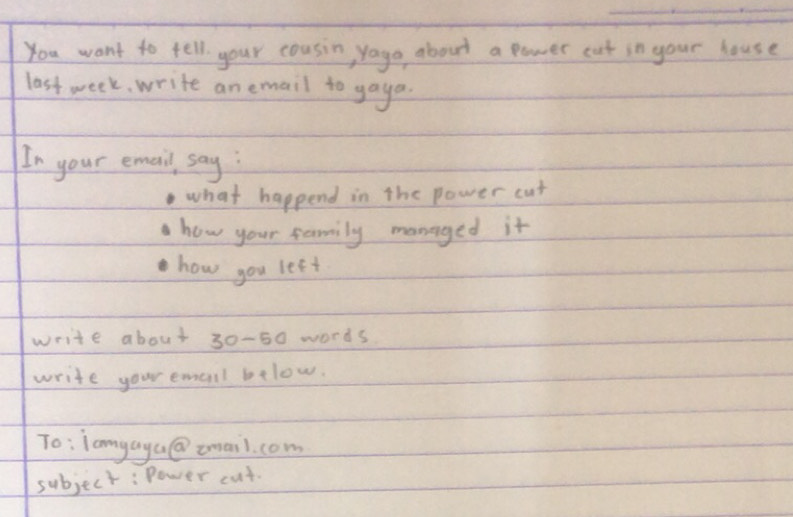 You want to tell. your cousin, Yaya, about a power cut in your house
last week. write an email to yaya.
In your email, say :
• what happend in the power cut
• how your family managed it
• how you left
write about 30-50 words.
write your email below.
To : iamyaya@zmail.com
subject : Power cut.